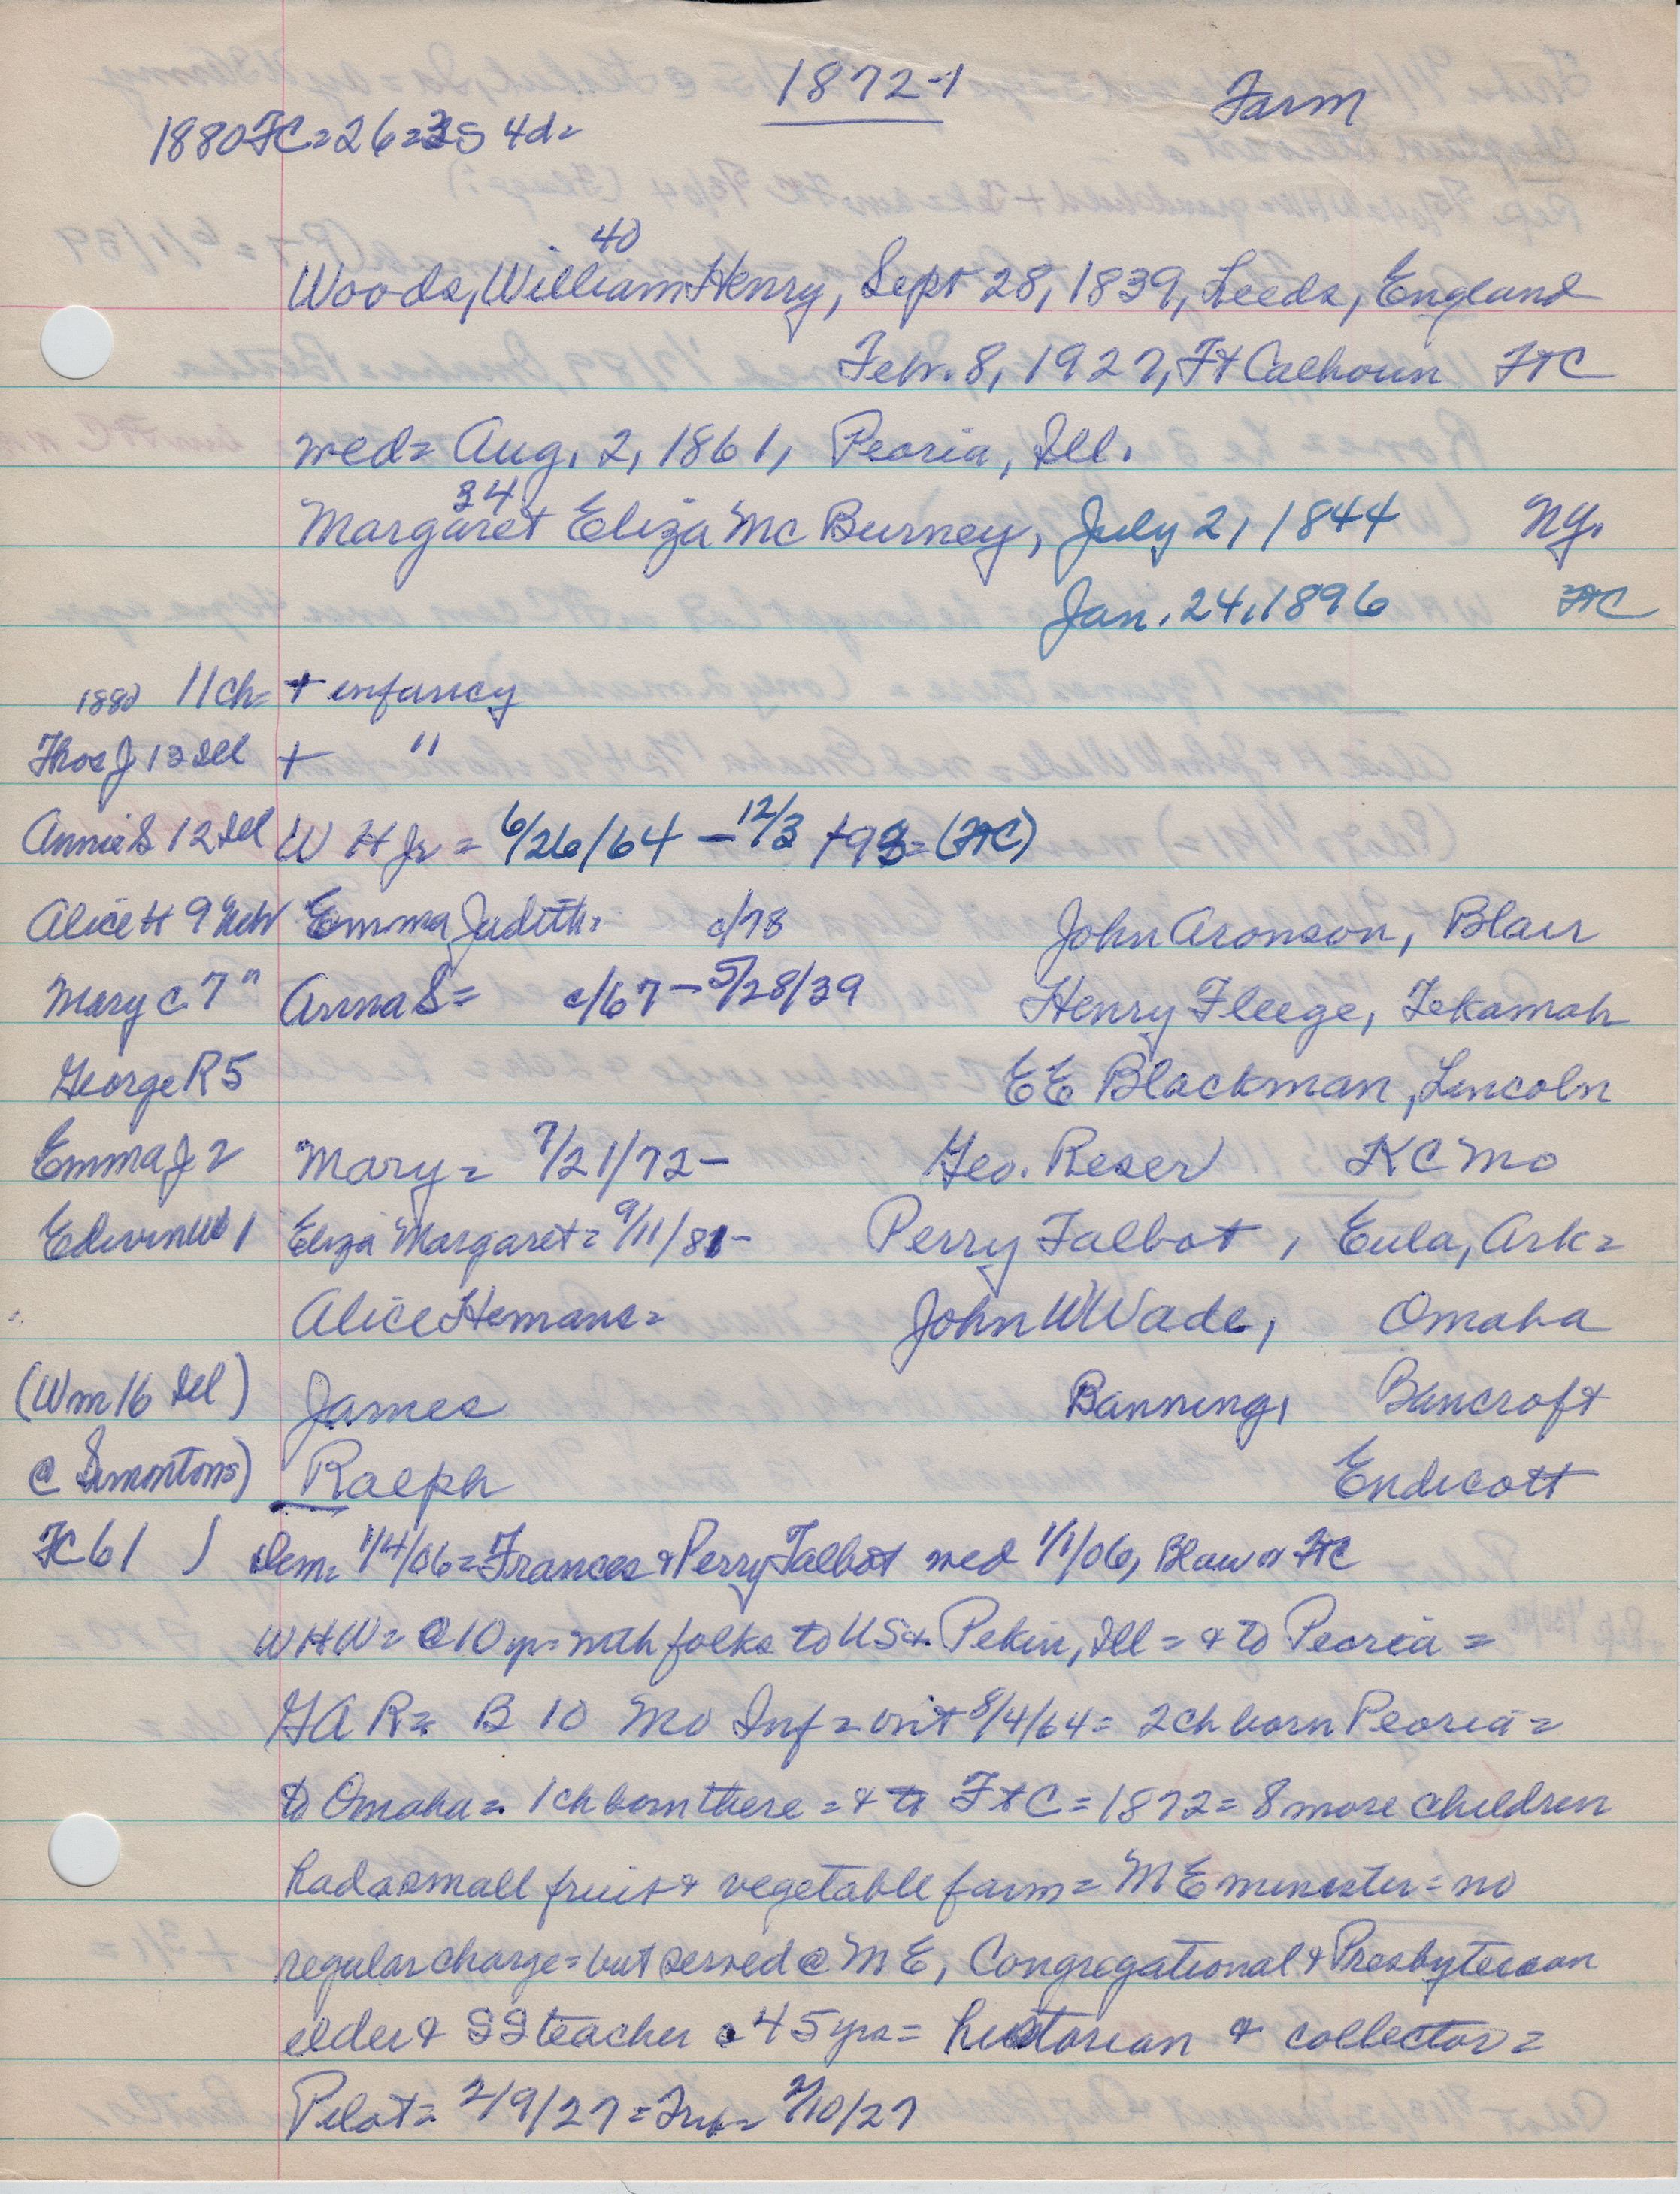 1872-1
Farm
1880 FC = 26 = 3S 4d =
40
Woods, William Henry, Sept 28, 1839, Leeds, England
Feb. 8, 1927, Ft Calhoun FtC
wed = Aug. 2, 1861, Peoria, Ill.
34
Margaret Eliza McBurney, July 2, 1844 NY.
Jan. 24, 1896 FtC
1880 11 ch = + infancy
Thos J 13 Ill + "
Annie S 12 Ill W H Jr = 6/26/64 - 12/3 + 93 = (FtC)
Alice H 9 Neb Emma Judith = c/78 John Aronson, Blair
Mary C 7 " Anna S = c/67 - 5/28/39 Henry Fleege, Tekamah
George R 5 EE Blackman, Lincoln
Emma J 2 Mary = 7/21/72 - Geo. Reser KC Mo
Edwin W 1 Eliza Margaret = 9/11/81 - Perry Talbot, Eula, Ark =
Alice Hemans = John W Wade, Omaha
(Wm 16 Ill) James Banning, Bancroft
@ Simontons) Ralph Endicott
FC 61 ) Dem = 1/4/06 = Frances & Perry Talbot wed 1/1/06, Blair or FtC
WHW = @ 10 yr = with folks to US & Pekin, Ill = & to Peoria =
GAR = B 10 Mo Inf = out 8/4/64 = 2 ch born Peoria =
to Omaha = 1 ch born there = & to FtC = 1872 = 8 more children
had a small fruit & vegetable farm = ME minister = no
regular charge = but served @ ME, Congregational & Presbyterian
elder & SS teacher @ 45 yrs = historian & collector =
Pilot = 2/9/27 = Trib = 2/10/27